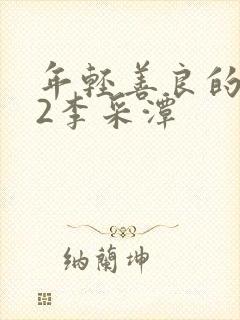 年輕善良的
2李采潭
納蘭坤